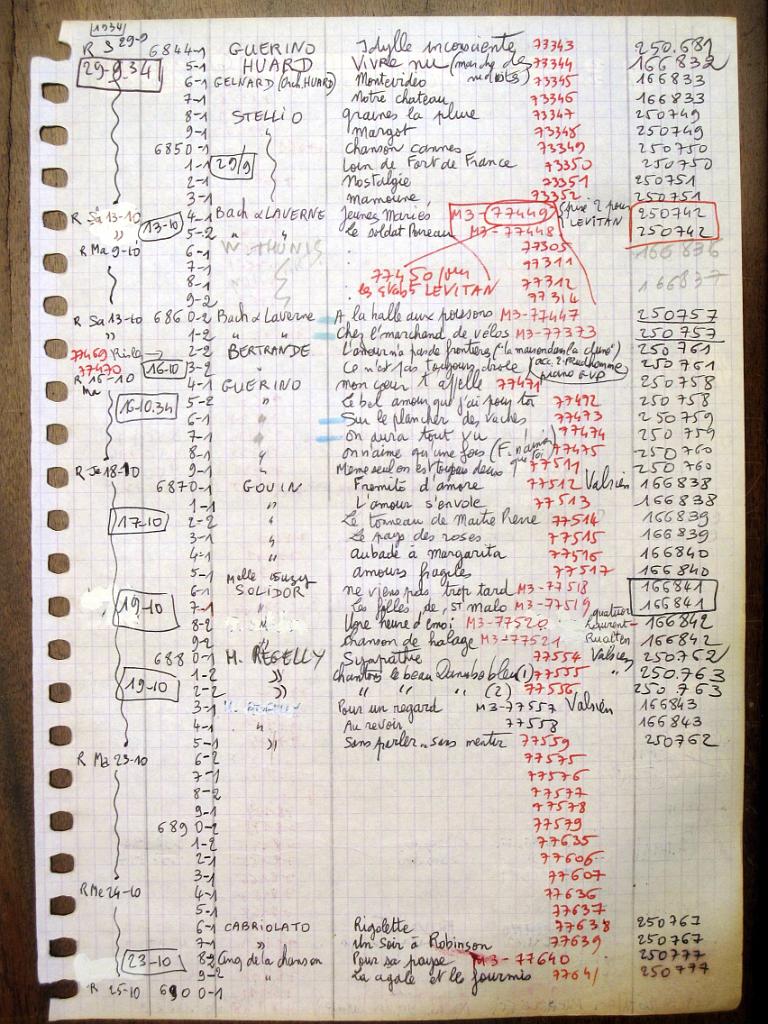 1934
R S 29-9 6844-1 GUERINO Idylle inconsciente 77343 250.681
29-9.34 5-1 HUARD Vivre nu (marche des nudistes) 77344 166832
6-1 GELNARD (Orch. HUARD) Montevideo 77345 166833
7-1 Notre chateau 77346 166833
8-1 STELLIO graines la pluie 77347 250749
9-1 " Margot 77348 250749
6850-1 chanson cannes 77349 250750
1-1 29/9 Loin de Fort de France 77350 250750
2-1 Nostalgie 77351 250751
3-1 Mamoune 77352 250751
R Sa 13-10 4-1 Bach & LAVERNE Jeunes Mariés M3-77449 2 pour LEVITAN 250742
" 13-10 5-2 " " Le soldat M3-77448 250742
R Ma 9-10 6-1 W. THUNIS 77305 166836
7-1 77311
8-1 77450 LEVITAN 77312 166837
9-2 77314
R Sa 13-10 6860-2 Bach & Laverne A la halle aux poissons M3-77447 250757
1-2 " " Chez l'marchand de vélos M3-77373 250757
77469 2-2 BERTRANDE L'amour n'a pas de frontières ("la maison dans la dune") 250761
77470 16-10 3-2 " Ce n'est pas toujours drole (acc. 2. Prudhomme piano GVP) 250761
R 16-10 Ma 4-1 GUERINO mon coeur t'appelle 77471 250758
16-10.34 5-2 " Le bel amour que j'ai pour toi 77472 250758
6-1 " Sur le plancher des vaches 77473 250759
7-1 " on aura tout vu 77474 250759
8-1 " on n'aime qu'une fois (F. n'aimai que toi) 77475 250760
R Je 18-10 9-1 " Meme seul on est toujours deux 77511 250760
6870-1 GOUIN Fremito d'amore 77512 Valsien 166838
1-1 " L'amour s'envole 77513 166838
17-10 2-2 " Le tonneau de Maitre Pierre 77514 166839
3-1 " Le pays des roses 77515 166839
4-1 " aubade à margarita 77516 166840
5-1 amours fragiles 77517 166840
6-1 Melle Suzy SOLIDOR ne viens pas trop tard M3-77518 166841
19-10 7-1 " Les filles de St malo M3-77519 166841
8-2 " Une heure d'emoi M3-77520 quatuor Laurent- 166842
9-2 " chanson de halage M3-77521 Rualten 166842
6880-1 M. REGELLY Sympathie 77554 Valsien 250762
1-2 " chantons le beau Danube bleu (1) 77555 " 250.763
19-10 2-2 " " " " (2) 77556 250 763
3-1 Pour un regard M3-77557 Valsien 166843
4-1 " Au revoir 77558 166843
5-1 " Sans parler.. sans mentir 77559 250762
R Ma 23-10 6-2 77575
7-1 77576
8-2 77577
9-1 77578
6890-2 77579
1-2 77635
2-1 77606
3-1 77607
R Me 24-10 4-1 77636
5-1 77637
6-1 CABRIOLATO Rigolette 77638 250767
7-1 " Un soir à Robinson 77639 250767
23-10 8-2 Cinq de la chanson Pour sa payse M3-77640 250777
9-2 " La cigale et le fourmis 77641 250777
R 25-10 6900-1